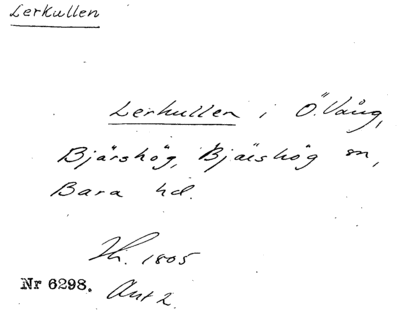 Lerkullen
Lerkullen i Ö. Vång,
Bjärshög, Bjärshög sn,
Bara hd.
1805
Nr 6298.
Akt 2.